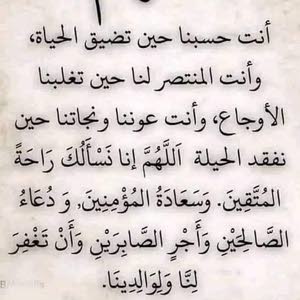 أنت حسبنا حين تضيق الحياة،
وأنت المنتصر لنا حين تغلبنا
الأوجاع، وأنت عوننا ونجاتنا حين
نفقد الحيلة اَللَّهُمَّ إنا نَسْأَلُكَ رَاحَةً
المُتَّقِينَ. وَسَعَادَةَ المُؤْمِنِينَ, وَ دُعَاءُ
الصَّالِحَيْنِ وَأَجْرِ الصَّابِرَيْنِ وَأَنْ تَغْفِرَ
لِنَّا وَلِوَالِدِينَا.